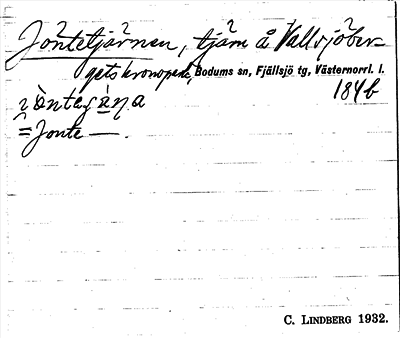 Jöntetjärnen, tjärn å Vallsjöber-
gets kronopark, Bodums sn, Fjällsjö tg, Västernorrl. l.
184b
= Jonte —.
C. LINDBERG 1932.